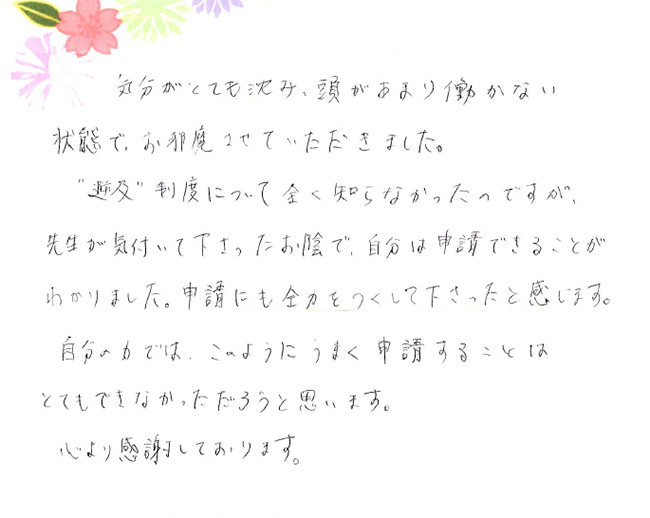 気分がとても沈み、頭があまり働かない
状態で、お邪魔させていただきました。
"遡及"制度について全く知らなかったのですが、
先生が気付いて下さったお陰で、自分は申請できることが
わかりました。申請にも全力をつくして下さったと感じます。
自分の力では、このようにうまく申請することは
とてもできなかっただろうと思います。
心より感謝しております。